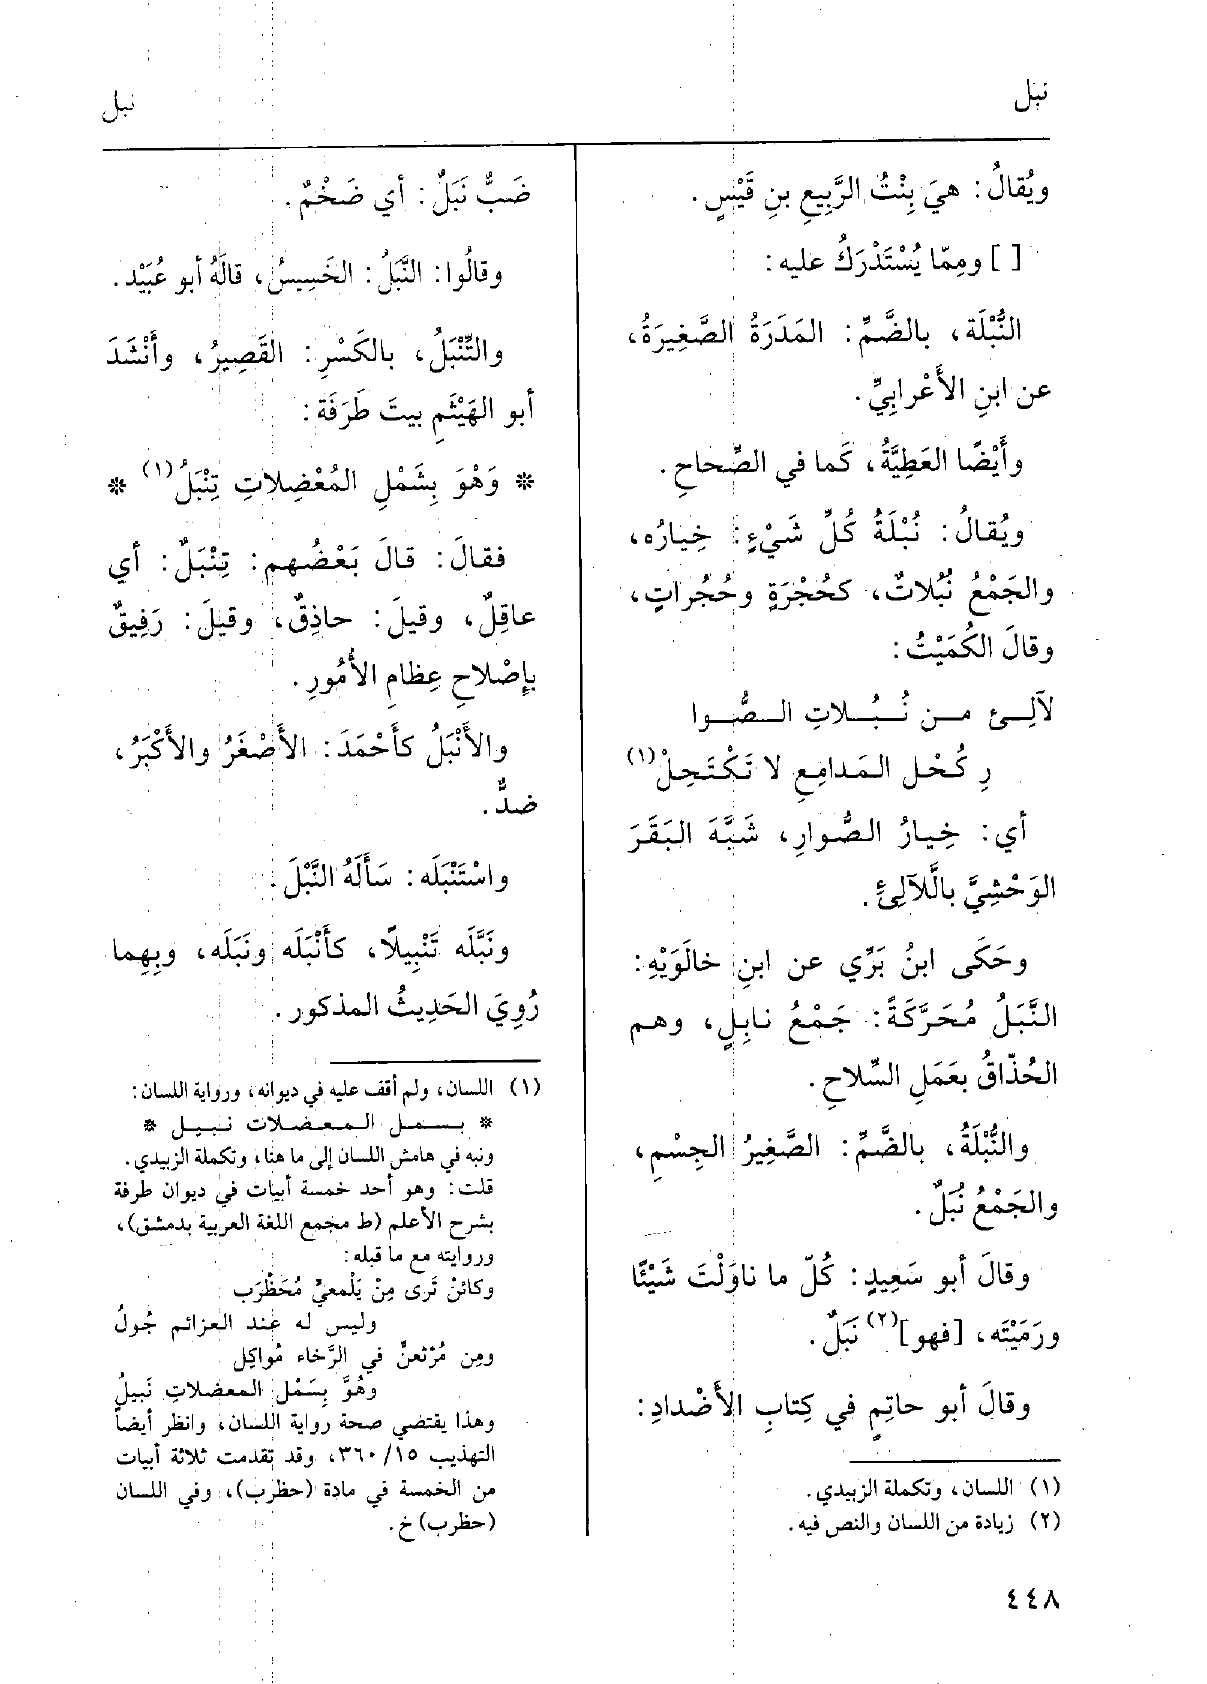 نبل
نبل
ويُقالُ: هيَ بِنْتُ الرَّبِيعِ بنِ قَيْسٍ.
[ ] ومِمّا يُسْتَدْرَكُ عليه:
النُّبْلَة، بالضَّمِّ: المَدَرَةُ الصَّغِيرَةُ،
عن ابنِ الأَعْرابِيِّ.
وأَيْضًا العَطِيَّةُ، كَما في الصِّحاحِ.
ويُقالُ: نُبْلَةُ كُلِّ شَيْءٍ: خِيارُه،
والجَمْعُ نُبُلاتٌ، كحُجْرَةٍ وحُجُراتٍ،
وقالَ الكُمَيْتُ:
لآلِئ من نُبُلاتِ الصُّوا
رِ كُحْل المَدامِعِ لا تَكْتَحِلْ(١)
أي: خِيارُ الصُّوارِ، شَبَّهَ البَقَرَ
الوَحْشِيَّ بالَّلآلِئِ.
وحَكَى ابنُ بَرِّي عن ابنِ خالَوَيْهِ:
النَّبَلُ مُحَرَّكَةً: جَمْعُ نابِلٍ، وهم
الحُذّاقُ بعَمَلِ السِّلاحِ.
والنُّبْلَةُ، بالضَّمِّ: الصَّغِيرُ الجِسْمِ،
والجَمْعُ نُبَلٌ.
وقالَ أبو سَعِيدٍ: كُلّ ما ناوَلْتَ شَيْئًا
ورَمَيْتَه، [فهو](٢) نَبَلٌ.
وقالَ أبو حاتِمٍ في كِتابِ الأَضْدادِ:
(١) اللسان، وتكملة الزبيدي.
(٢) زيادة من اللسان والنص فيه.
ضَبٌّ نَبَلٌ: أي ضَخْمٌ.
وقالُوا: النَّبَلُ: الخَسِيسُ، قالَهُ أبو عُبَيْد.
والتِّنْبَلُ، بالكَسْرِ: القَصِيرُ، وأَنْشَدَ
أبو الهَيْثَمِ بيتَ طَرَفَة:
* وَهْوَ بِشَمْلِ المُعْضِلاتِ تِنْبَلُ(١) *
فقالَ: قالَ بَعْضُهم: تِنْبَلٌ: أي
عاقِلٌ، وقيلَ: حاذِقٌ، وقيلَ: رَفِيقٌ
بإِصْلاحِ عِظامِ الأُمُورِ.
والأَنْبَلُ كأَحْمَدَ: الأَصْغَرُ والأَكْبَرُ،
ضدٌّ.
واسْتَنْبَلَه: سَأَلَهُ النَّبْلَ.
ونَبَّلَه تَنْبِيلاً، كأَنْبَلَه ونَبَلَه، وبِهِما
رُوِيَ الحَدِيثُ المذكور.
(١) اللسان، ولم أقف عليه في ديوانه، ورواية اللسان:
* بسمل المعضلات نبيل *
ونبه في هامش اللسان إلى ما هنا، وتكملة الزبيدي.
قلت: وهو أحد خمسة أبيات في ديوان طرفة
بشرح الأعلم (ط مجمع اللغة العربية بدمشق)،
وروايته مع ما قبله:
وكائنْ تَرى مِنْ يَلْمعيٍّ مُحَظْرَب
وليس له عند العزائم جُولُ
ومِن مُرْثعنٍّ في الرَّخاء مُواكِل
وهُوَّ بِسَمْلِ المعضلاتِ نَبيلُ
وهذا يقتضي صحة رواية اللسان، وانظر أيضاً
التهذيب ١٥/ ٣٦٠، وقد تقدمت ثلاثة أبيات
من الخمسة في مادة (حظرب)، وفي اللسان
(حظرب) خ.
٤٤٨